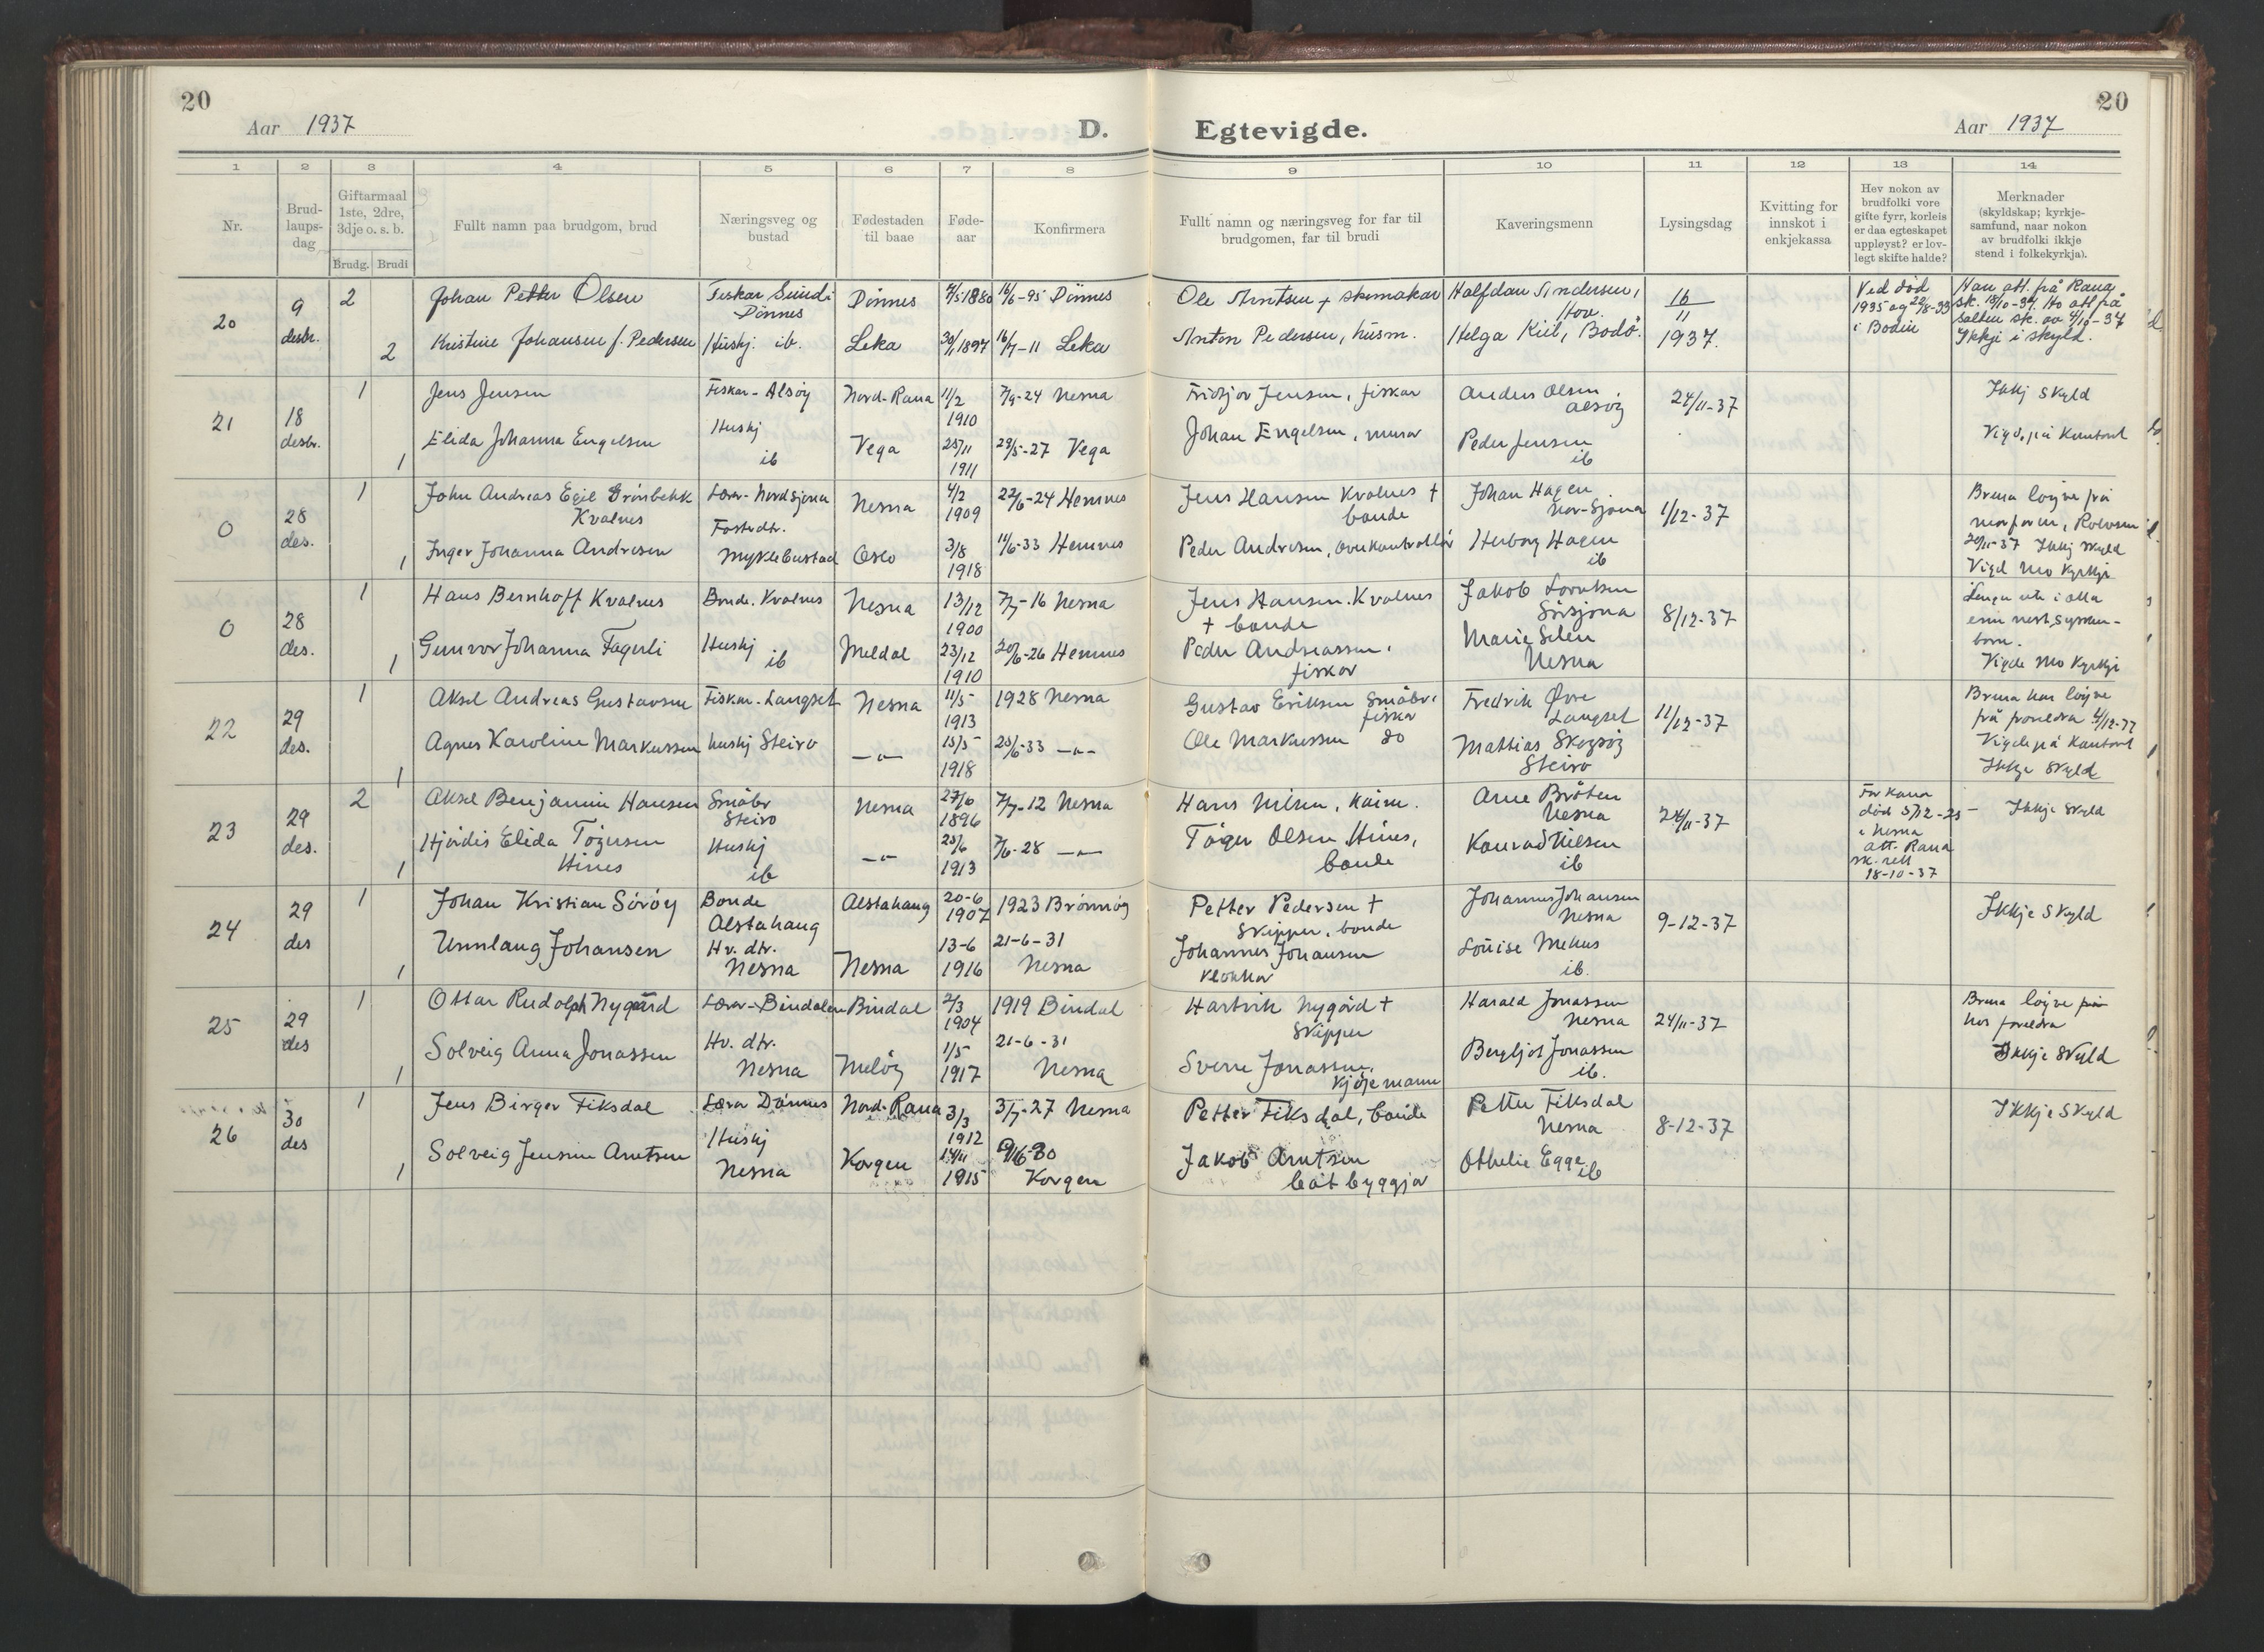 20
20
Aar 1937
D.
Egtevigde.
Aar 1937
1 2 3 4 5 6 7 8 9 10 11 12 13 14
Nr.
Brud-
laups-
dag
Giftarmaal
1ste, 2dre,
3dje o. s. b.
Brudg. Brudi
Fullt namn paa brudgom, brud
Næringsveg og
bustad
Fødestaden
til baae
Føde-
aar
Konfirmera
Fullt namn og næringsveg for far til
brudgomen, far til brudi
Kaveringsmenn
Lysingsdag
Kvitting for
innskot i
enkjekassa
Hev nokon av
brudfolki vore
gifte fyrr, korleis
er daa egteskapet
uppløyst? er lov-
legt skifte halde?
Merknader
(skyldskap; kyrkje-
samfund, naar nokon
av brudfolki ikkje
stend i folkekyrkja).
20
9
desbr.
2
Johan Petter Olsen
Fiskar
Dønnes
Dønnes
1880
16/6-95 Dønnes
Ole Arntsen + skomakar
Halfdan Andersen,
Hov.
16
11
1937.
Ved død
1935 og 22/8-33
i Bodin
Han att. frå Rana
Ho att frå
Salten sk. av 4/10-37
Ikkje i skyld.
2
Kristine Johansen f. Pedersen
Huskj. ib.
Leka
1897
16/7-11 Leka
Anton Pedersen, husm.
Helga Kiil, Bodø.
21
18
desbr.
1
Jens Jensen
Fiskar - Alsøy
Nord-Rana
11/2
1910
7/9-24 Nesna
Fridtjov Jensen, fiskar
Anders Olsen
Alsøy
24/11-37
Ikkj skyld
1
Elida Johanna Engelsen
Huskj
ib
Vega
25/11
1911
29/5-27 Vega
Johan Engelsen, murar
Peder Jensen
ib
Vigd. på Kontoret
0
28
des.
1
John Andreas Egil Grønbekk
Kvalnes
Lærar - Nordsjona
Nesna
4/2
1909
22/6-24 Hemnes
Jens Hansen Kvalnes +
bonde
Johan Hagen
Nor-Sjona
1/12-37
Brura løyve frå
morfaren,
20/11-37 Ikkj skyld
Vigd Mo Kyrkje
1
Inger Johanna Andresen
Fosterdtr.
Myklebustad
Oslo
3/8
1918
11/6-33 Hemnes
Peder Andresen, overkontrollør
Herborg Hagen
ib
0
28
des.
1
Hans Bernhoff Kvalnes
Bonde. Kvalnes
Nesna
13/12
1900
7/7-16 Nesna
Jens Hansen Kvalnes
+ bonde
Jakob Lorntsen
Sørsjona
8/12-37
enn nest syskin-
born.
Vigde Mo Kyrkje
1
Gunvor Johanna Fagerli
Huskj
ib
Meldal
23/12
1910
20/6-26 Hemnes
Peder Andreassen,
fiskar
Marie Selen
Nesna
22
29
des.
1
Aksel Andreas Gustavsen
Fiskar. Langset
Nesna
11/5
1913
1928 Nesna
Gustav Eriksen Småbr.
fiskar
Fredrik Øvre
Langset
11/12-37
Brura har løyve
frå foreldra 4/12-37
Vigde på Kontoret
Ikkje skyld
1
Agnes Karoline Markussen
huskj Steiro
—"—
15/5
1918
25/6-33 —"—
Ole Markussen do
Mathias Skogsøy
Steiro
23
29
des.
2
Aksel Benjamin Hansen
Småbr
Steiro
Nesna
27/6
1896
7/7-12 Nesna
Hans Nilsen, kårm.
Arne Bråten
Nesna
24/11-37
Før kona
død 5/12-25
i Nesna
att. Rana
sk. rett
18-10-37
Ikkje skyld
1
Hjørdis Elida Tøgersen
Hines
Huskj
ib
—"—
25/6
1913
7/6-28 —"—
Tøger Olsen Hines,
bonde
Konrad Nilsen
ib
24
29
des
1
Johan Kristian Sørøy
Bonde
Alstahaug
Alstahaug
20-6
1907
1923 Brønnøy
Petter Pedersen +
Skipper, bonde
Johannes Johansen
Nesna
9-12-37
Ikkje skyld
1
Unnlaug Johansen
Hv. dtr.
Nesna
Nesna
13-6
1916
21-6-31
Nesna
Johannes Johansen
klokkar
Lovise Mehus
ib.
25
29
des
1
Ottar Rudolph Nygård
Lærar - Bindalen
Bindal
2/3
1904
1919 Bindal
Hartvik Nygård +
Skipper
Harald Jonassen
Nesna
24/11-37
Brura løyve frå
hos foreldra
Ikkje skyld
1
Solveig Anna Jonassen
Hv. dtr.
Nesna
Meløy
1/5
1917
21-6-31
Nesna
Sverre Jonassen,
Kjøpmann
Bergljot Jonassen
ib.
26
30
des
1
Jens Birger Fiksdal
Lærar Dønnes
Nord-Rana
3/3
1912
3/7-27 Nesna
Petter Fiksdal, bonde
Petter Fiksdal
Nesna
8-12-37
Ikkje skyld
1
Solveig Jensine Arntsen
Huskj
Nesna
Korgen
14/11
1915
Korgen
Jakob Arntsen
båtbyggjar
Othelie Egge
ib